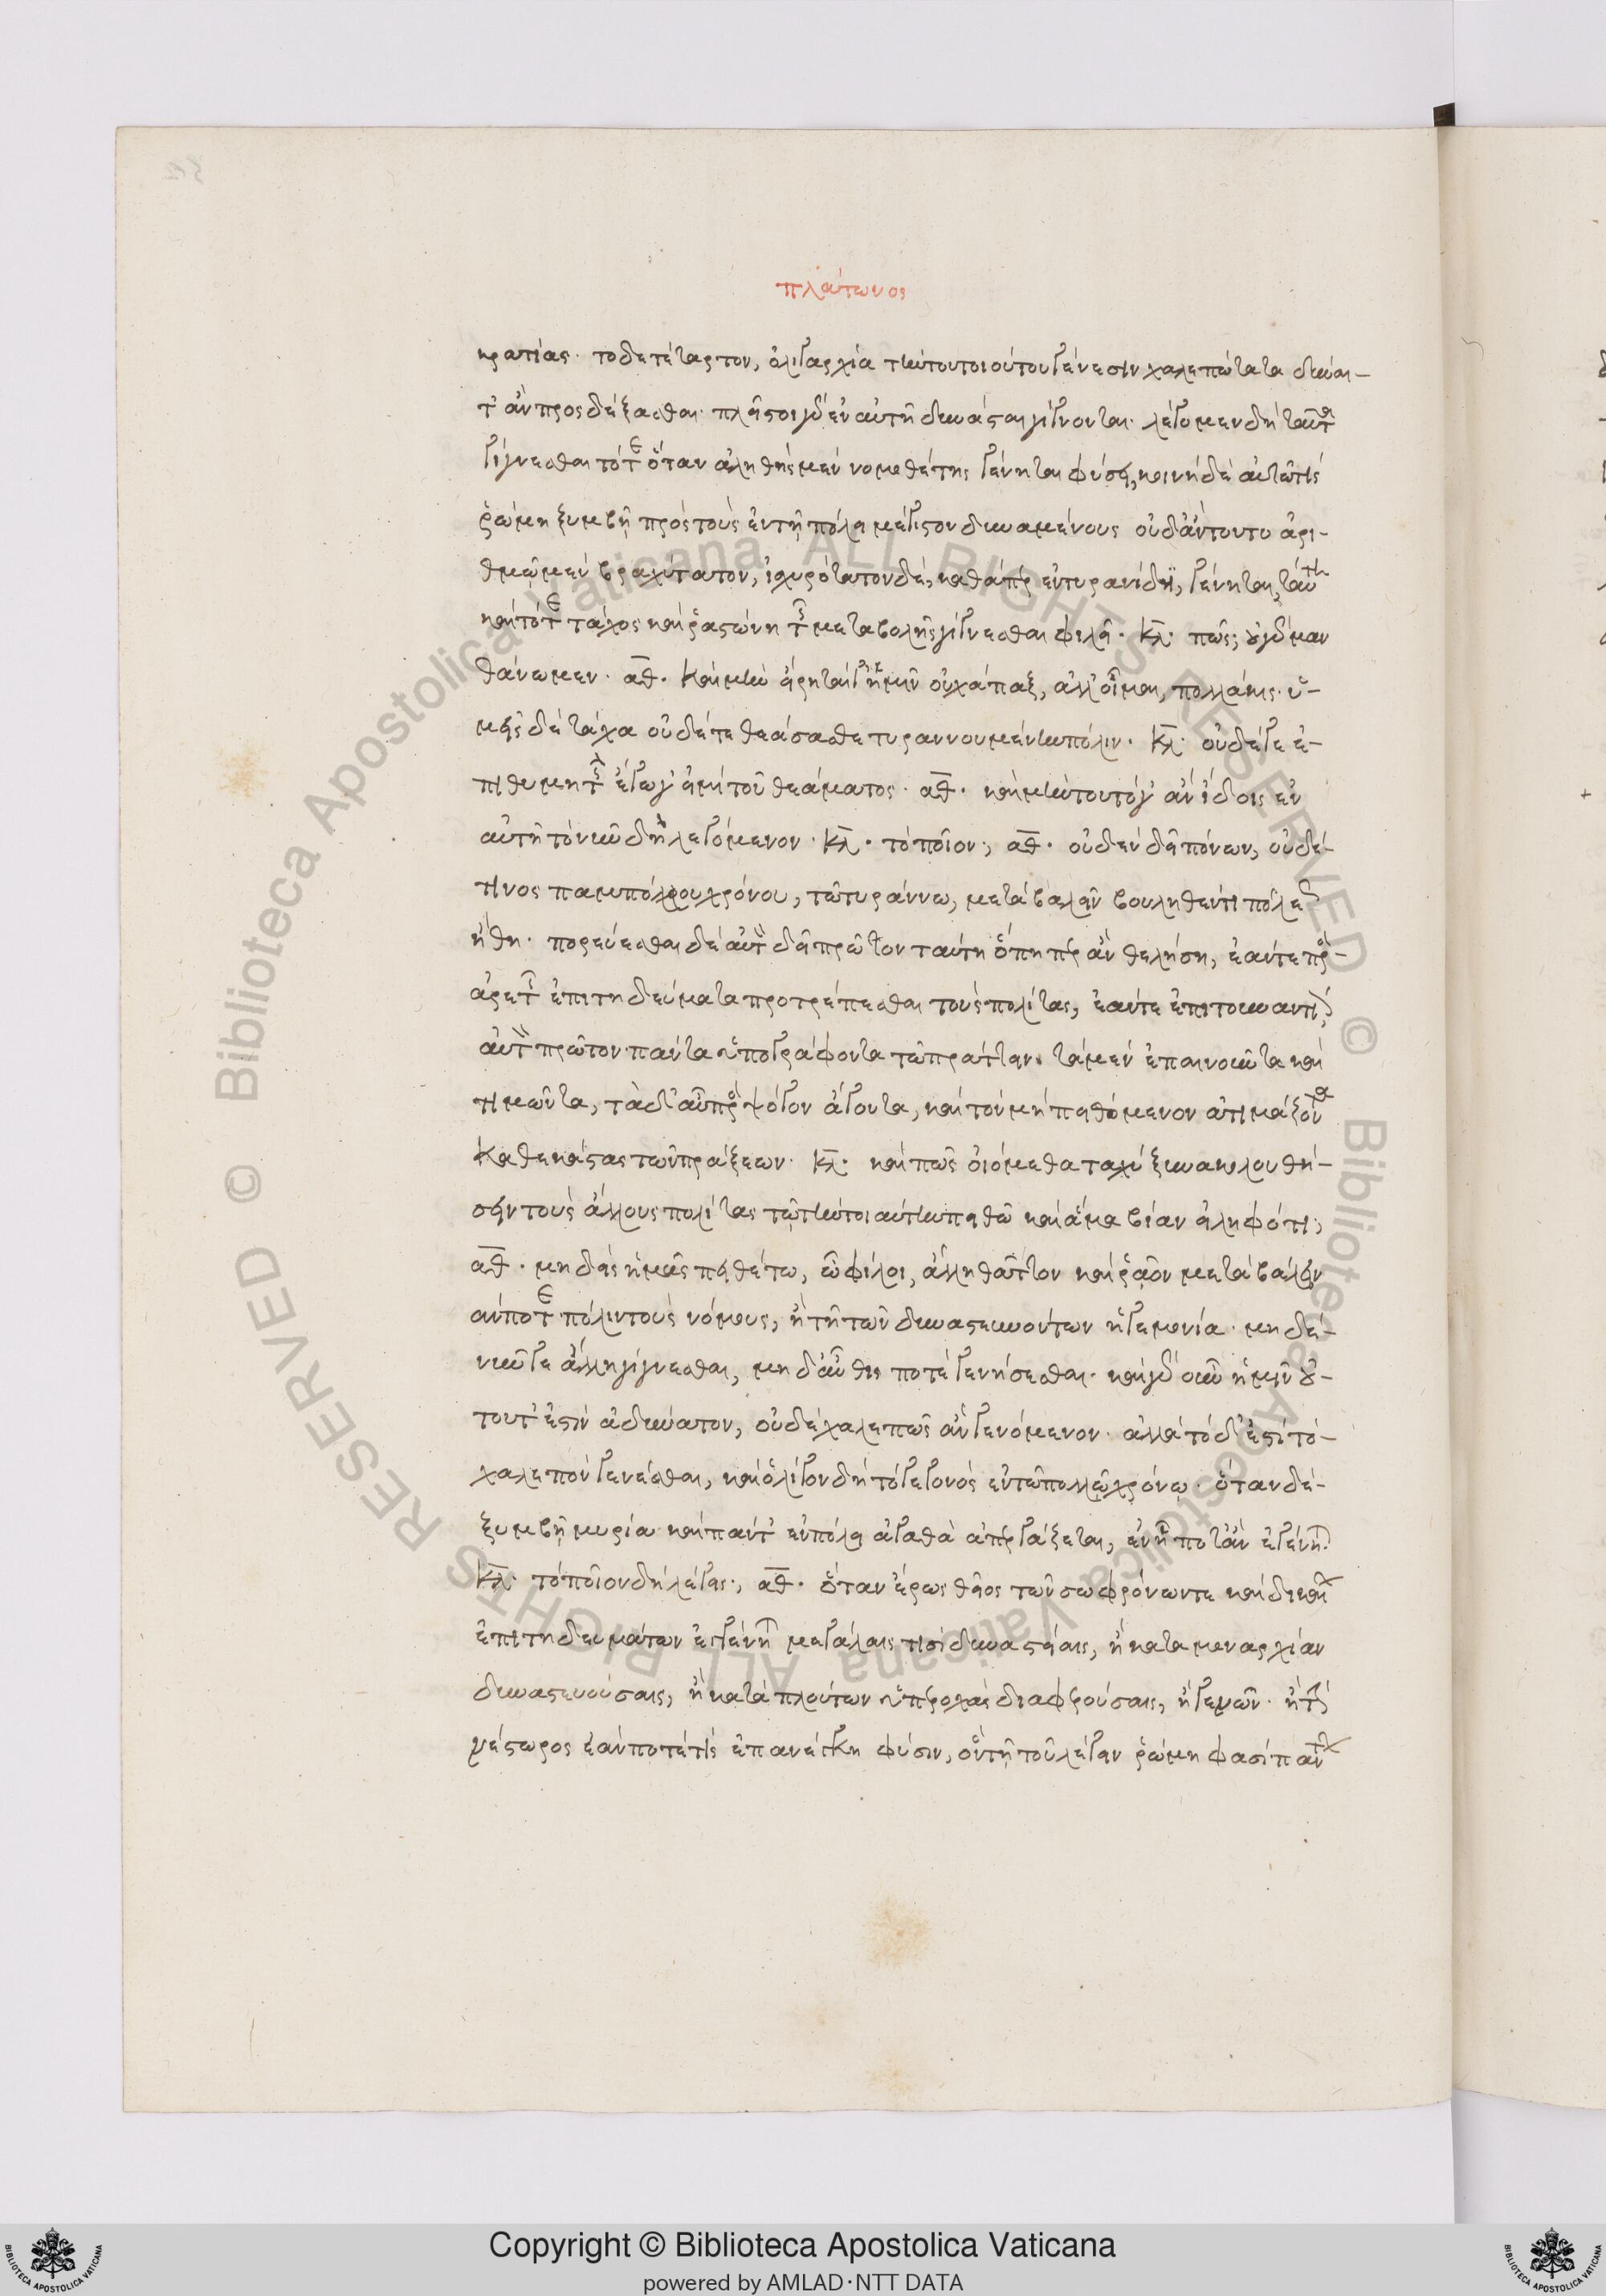 πλάτωνος
κρατίας· τὸ δὲ τέταρτον, ὀλιγαρχία τὴν τοῦ τοιούτου γένεσιν χαλεπώτατα δύναι-
τ' ἂν προσδέξασθαι· πλεῖστοι γὰρ ἐν αὐτῇ δυνάσται γίγνονται· λέγομεν δὴ ταῦτα
γίγνεσθαι τότε ὅταν ἀληθὴς μὲν νομοθέτης γένηται φύσει, κοινὴ δὲ αὐτῷ τίς
ῥώμη ξυμβῇ πρὸς τοὺς ἐν τῇ πόλει μέγιστον δυναμένους οὗ δ' ἂν τοῦτο ἀρι-
θμῷ μὲν βραχύτατον, ἰσχυρότατον δὲ, καθάπερ ἐν τυρανίδι, γένηται, ταύτη
καὶ τότε τάχος καὶ ῥαστώνη τῆς μεταβολῆς γίγνεσθαι φιλεῖ· κλ· πῶς; οὐ γὰρ μαν
θάνωμεν· αθ· καὶ μὴν εἴρηταί γ' ἡμῖν οὐχ ἅπαξ, ἀλλ' οἶμαι, πολλάκις· ὑ-
μεῖς δὲ τάχα οὐδὲ τεθεάσασθε τυραννουμένην πόλιν· κλ· οὐδέ γε ἐ-
πιθυμητὴς ἔγωγ' εἰμὶ τοῦ θεάματος· αθ· καὶ μὴν τοῦτό γ' ἂν ἴδοις ἐν
αὐτῇ τὸ νῦν δὴ λεγόμενον· κλ· τὸ ποῖον; αθ· οὐδὲν δεῖ πόνων, οὐδέ
τινος παμπόλλου χρόνου, τῷ τυράννω, μεταβαλεῖν βουληθέντι πόλεως
ἤθη· πορεύεσθαι δὲ αὐτὸν δεῖ πρῶτον ταύτη ὅπη περ ἂν θελήση, ἐάν τε πρὸς
ἀρετῆς ἐπιτηδεύματα προτρέπεσθαι τοὺς πολίτας, ἐάν τε ἐπὶ τοὐναντίον,
αὐτὸν πρῶτον πάντα ὑπογράφοντα τῷ πράττειν· τὰ μὲν ἐπαινοῦντα καὶ
τιμῶντα, τὰ δ' αὖ πρὸς ψόγον ἄγοντα, καὶ τὸν μὴ πειθόμενον ἀτιμάζοντα
καθ' ἑκάστας τῶν πράξεων· κλ· καὶ πῶς οἰόμεθα ταχὺ ξυνακολουθή-
σειν τοὺς ἄλλους πολίτας τῷ τὴν τοιαύτην πειθὼ καὶ ἅμα βίαν εἰληφότι;
αθ· μηδεὶς ἡμᾶς πειθέτω, ὦ φίλοι, ἄλλη θᾶττον καὶ ῥᾷον μεταβάλειν
ἄν ποτε πόλιν τοὺς νόμους, ἢ τῇ τῶν δυναστευόντων ἡγεμονία· μηδὲ
νῦν γε ἄλλη γίγνεσθαι, μηδ' αὖθίς ποτε γενήσεσθαι· καὶ γὰρ οὖν ἡμῖν οὐ
τοῦτ' ἐστὶν ἀδύνατον, οὐδὲ χαλεπῶς ἂν γενόμενον· ἀλλὰ τὸ δ' ἐστὶ τὸ
χαλεπὸν γενέσθαι, καὶ ὀλίγον δὴ τὸ γεγονὸς ἐν τῷ πολλῷ χρόνῳ· ὅταν δὲ
ξυμβῇ μυρία καὶ πάντ' ἐν πόλει ἀγαθὰ ἀπεργάζεται, ἐν ᾗ ποτ' ἂν ἐγένηται·
κλ· τὸ ποῖον δὴ λέγεις; αθ· ὅταν ἔρως θεῖος τῶν σωφρόνων τε καὶ δικαίων
ἐπιτηδευμάτων ἐγγένηται μεγάλαις τισὶ δυναστείαις, ἢ κατὰ μοναρχίαν
δυναστευούσαις, ἢ κατὰ πλούτων ὑπεροχὰς διαφερούσαις, ἢ γενῶν· ἢ τὴν
νέστορος ἐάν ποτέ τίς ἐπανέγκη φύσιν, ὃν τῇ τοῦ λέγειν ῥώμη φασὶ πάντων